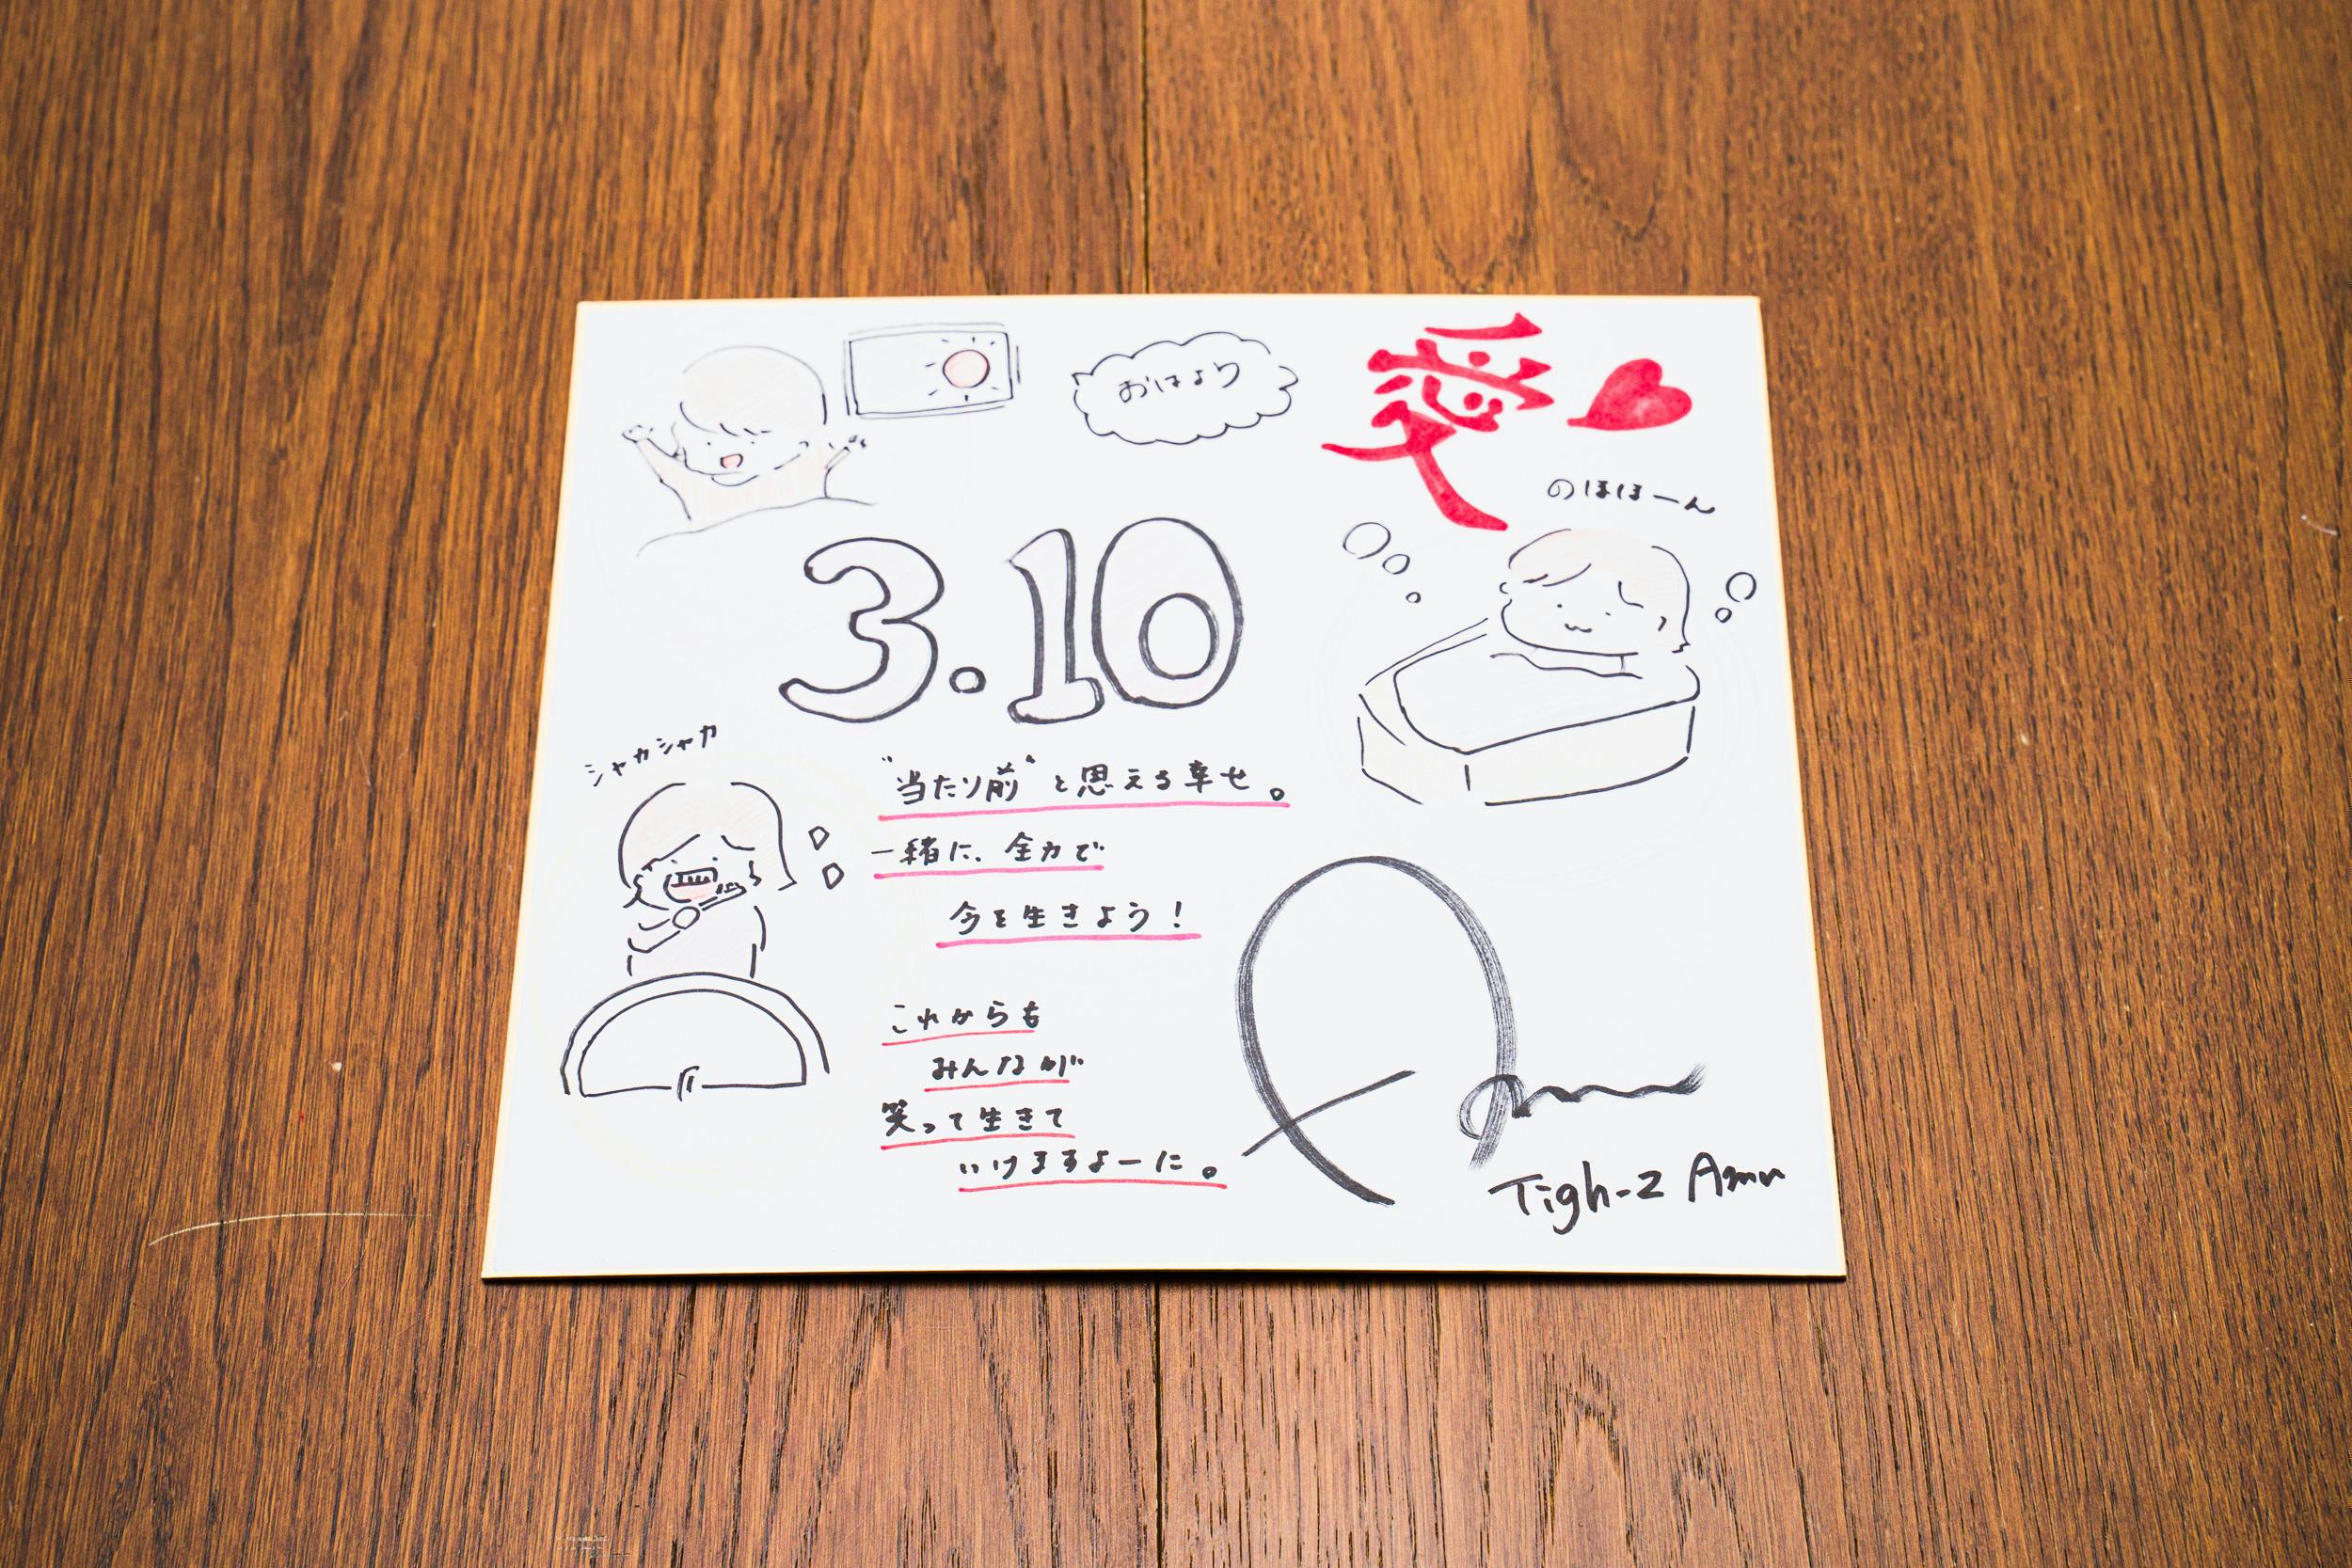 おはよう
愛
のほほーん
3.10
シャカシャカ
"当たり前"と思える幸せ。
一緒に、全力で
今を生きよう！
これからも
みんなが
笑って生きて
いけますよーに。
Tigh-Z Amu